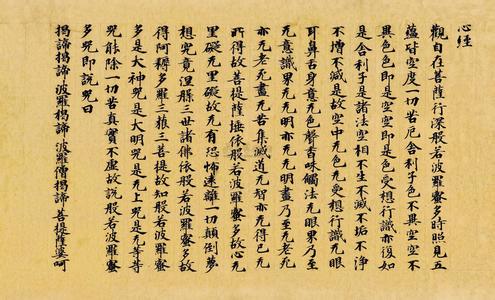 心經
觀自在菩薩行深般若波羅蜜多時照見五
蘊皆空度一切苦厄舍利子色不異空空不
異色色即是空空即是色受想行識亦復如
是舍利子是諸法空相不生不滅不垢不淨
不增不減是故空中无色无受想行識无眼
耳鼻舌身意无色聲香味觸法无眼界乃至
无意識界无无明亦无无明盡乃至无老死
亦无老死盡无苦集滅道无智亦无得已无
所得故菩提薩埵依般若波羅蜜多故心无
罣礙无罣礙故无有恐怖遠離一切顛倒夢
想究竟涅槃三世諸佛依般若波羅蜜多故
得阿耨多羅三藐三菩提故知般若波羅蜜
多是大神咒是大明咒是无上咒是无等等
咒能除一切苦真實不虛故說般若波羅蜜
多咒即說咒曰
揭諦揭諦 波羅揭諦 波羅僧揭諦 菩提薩莫呵